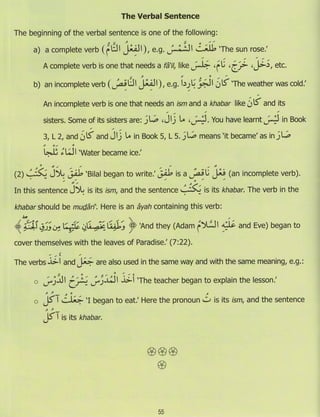 The Verbal Sentence
The beginning of the verbal sentence is one of the following:
a) a complete verb (الفِعْلُ التَّامُّ), e.g. طَلَعَتِ الشَّمْسُ 'The sun rose.'
A complete verb is one that needs a fā'il, like دَخَلَ، خَرَجَ، نَامَ، جَلَسَ, etc.
b) an incomplete verb (الفِعْلُ النَّاقِصُ), e.g. كَانَ الجَوُّ بَارِدًا 'The weather was cold.'
An incomplete verb is one that needs an ism and a khabar like كَانَ and its
sisters. Some of its sisters are: لَيْسَ، مَا زَالَ، صَارَ. You have learnt لَيْسَ in Book
3, L 2, and كَانَ and مَا زَالَ in Book 5, L 5. صَارَ means 'it became' as in صَارَ
المَاءُ ثَلْجًا 'Water became ice.'
(2) طَفِقَ بِلَالٌ يَكْتُبُ 'Bilal began to write.' طَفِقَ is a فِعْلٌ نَاقِصٌ (an incomplete verb).
In this sentence بِلَالٌ is its ism, and the sentence يَكْتُبُ is its khabar. The verb in the
khabar should be muḍāri'. Here is an āyah containing this verb:
﴿وَطَفِقَا يَخْصِفَانِ عَلَيْهِمَا مِن وَرَقِ الْجَنَّةِ﴾ 'And they (Adam عليه السلام and Eve) began to
cover themselves with the leaves of Paradise.' (7:22).
The verbs أَخَذَ and جَعَلَ are also used in the same way and with the same meaning, e.g.:
o أَخَذَ المُدَرِّسُ يَشْرَحُ الدَّرْسَ 'The teacher began to explain the lesson.'
o جَعَلْتُ آكُلُ 'I began to eat.' Here the pronoun تُ is its ism, and the sentence
آكُلُ is its khabar.
55